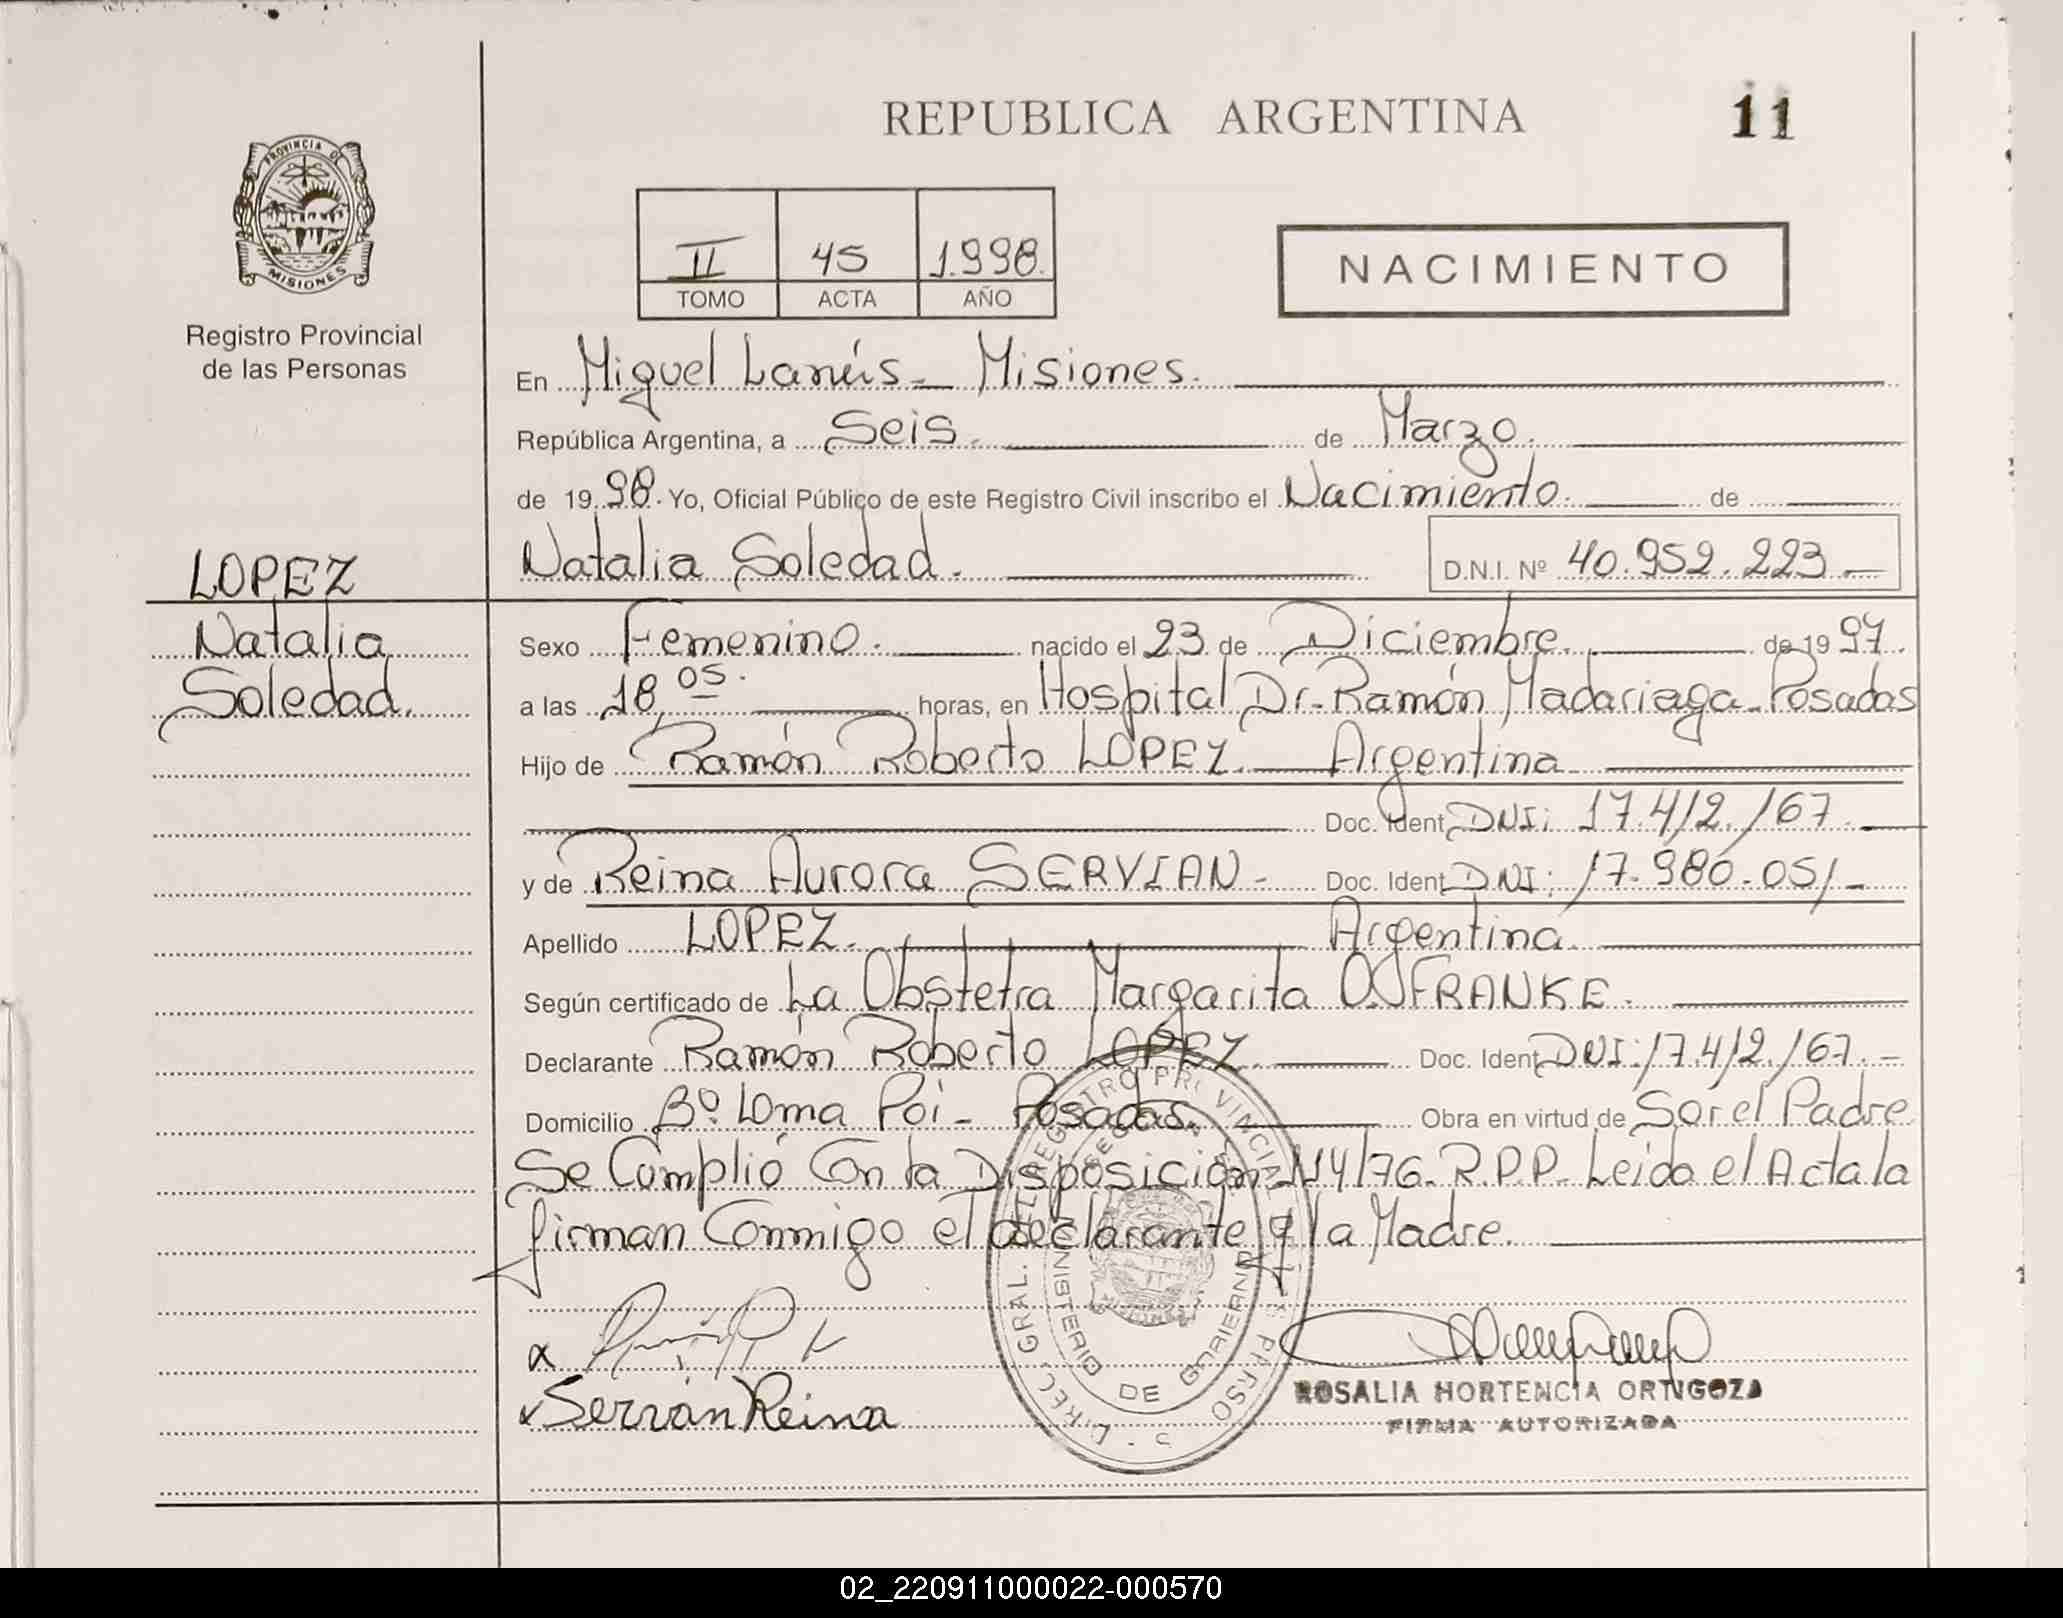 REPUBLICA ARGENTINA
11
PROVINCIA DE
MISIONES
Registro Provincial
de las Personas
II 45 1.998.
TOMO ACTA AÑO
NACIMIENTO
En Miguel Lanús - Misiones.
República Argentina, a Seis. de Marzo.
de 19 98. Yo, Oficial Público de este Registro Civil inscribo el Nacimiento. de
Natalia Soledad. D.N.I. Nº 40.952.223 -
LOPEZ
Natalia
Soledad.
Sexo Femenino. nacido el 23 de Diciembre. de 19 97.
a las 18,05. horas, en Hospital Dr. Ramón Madariaga - Posadas
Hijo de Ramón Roberto LOPEZ. Argentina
Doc. Ident. DNI: 17.412.167.
y de Reina Aurora SERVIAN - Doc. Ident. DNI: 17.980.051 -
Apellido LOPEZ. Argentina.
Según certificado de La Obstetra Margarita O. FRANKE.
Declarante Ramón Roberto LOPEZ. Doc. Ident. DNI: 17.412.167. -
Domicilio Bº Loma Poi - Posadas. Obra en virtud de Ser el Padre
Se Cumplió Con la Disposición 114/76. R.P.P. Leida el Acta la
firman Conmigo el declarante y la Madre.
x
x Servián Reina
ROSALIA HORTENCIA ORTIGOZA
FIRMA AUTORIZADA
MINISTERIO DE GOBIERNO
02_220911000022-000570